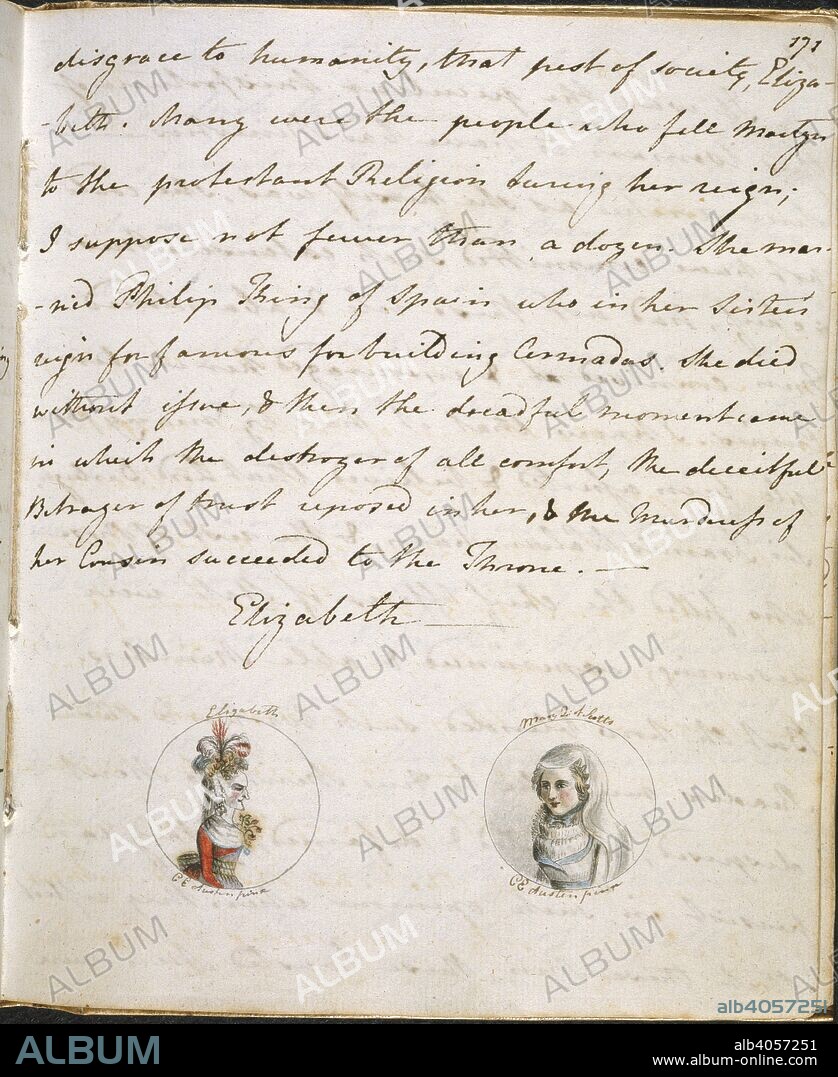 171
disgrace to humanity, that pest of society, Eliza-
-beth. Many were the people who fell Martyrs
to the protestant Religion during her reign;
I suppose not fewer than a dozen. She mar-
-ried Philip King of Spain who in her Sister's
reign for famous for building Armadas. She died
without issue, & then the dreadful moment came
in which the destroyer of all comfort, the deceitful
Betrayer of trust reposed in her, & the Murderess of
her Cousin succeeded to the Throne. —
Elizabeth —
Elizabeth
Mary Q of Scots
CE Austen pinx
CE Austen pinx
ALBUM
alb4057251
ALBUM
alb4057251
www.album-online.com